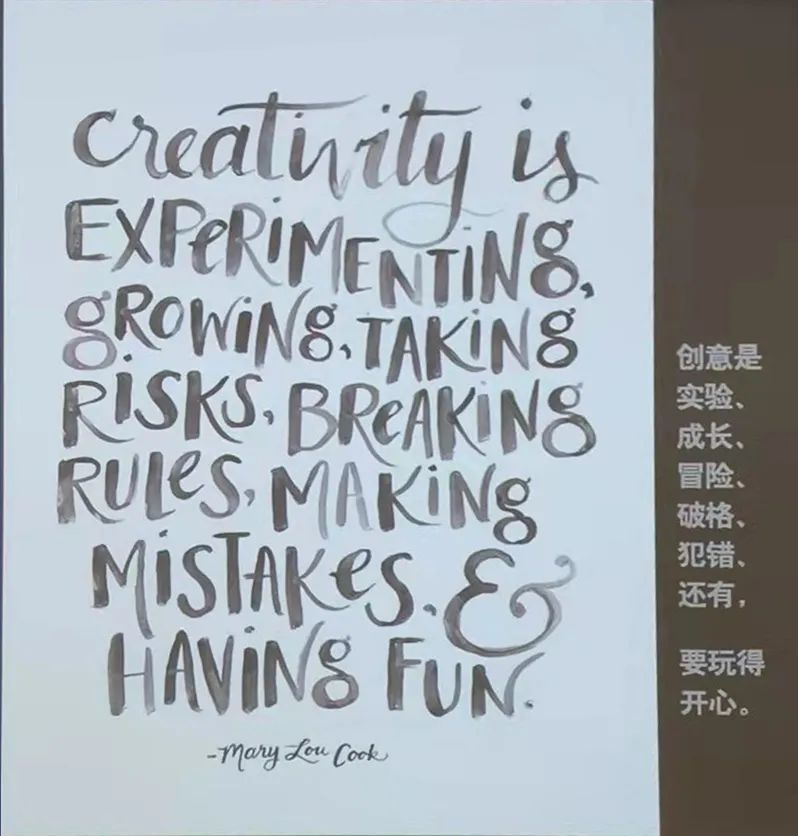 creativity is
EXPERIMENTING,
gROWING, TAKING
RISKS, BREAKING
RULES, MAKING
MISTAKES, &
HAVING FUN.
-Mary Lou Cook
创意是
实验、
成长、
冒险、
破格、
犯错、
还有，
要玩得
开心。